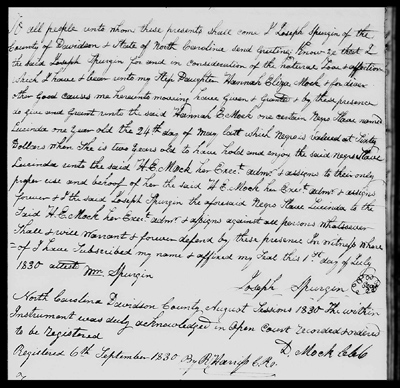 To all people unto whom these presents shall come I Joseph Spurgin of the
County of Davidson & State of North Carolina send Greeting Know ye that I
the said Joseph Spurgin for and in consideration of the natural Love & affection
which I have & bear unto my Step Daughter Hannah Eliza Mock & for divers
other Good causes me hereunto moving have Given & Granted & by these presence
do give and Grant unto the said Hannah E Mock one certain Negro Slave named
Lucinda one year old the 24th day of May last which Negro is valued at Sixty
Dollars when She is two years old to have hold and enjoy the said Negro Slave
Lucinda unto the said H. E. Mock her Exect. admr & assigns to their only
proper use and behoof of her the said H E Mock her Exct. admr & assigns
forever & I the said Joseph Spurgin the aforesaid Negro Slave Lucinda to the
Said H. E. Mock her Exect. admr & assigns against all persons Whatsoever
Shall & will Warrant & forever defend by these presence In Witness Where
=of I have Subscribed my name & affixed my Seal this 1st day of July
1830 attest Wm Spurgin
Joseph Spurgin
North Carolina Davidson County August Sessions 1830 The within
Instrument was duly acknowledged in Open Court recorded & ordered
to be Registered
D. Mock CCC
Registered 6th September 1830 By R Harriss